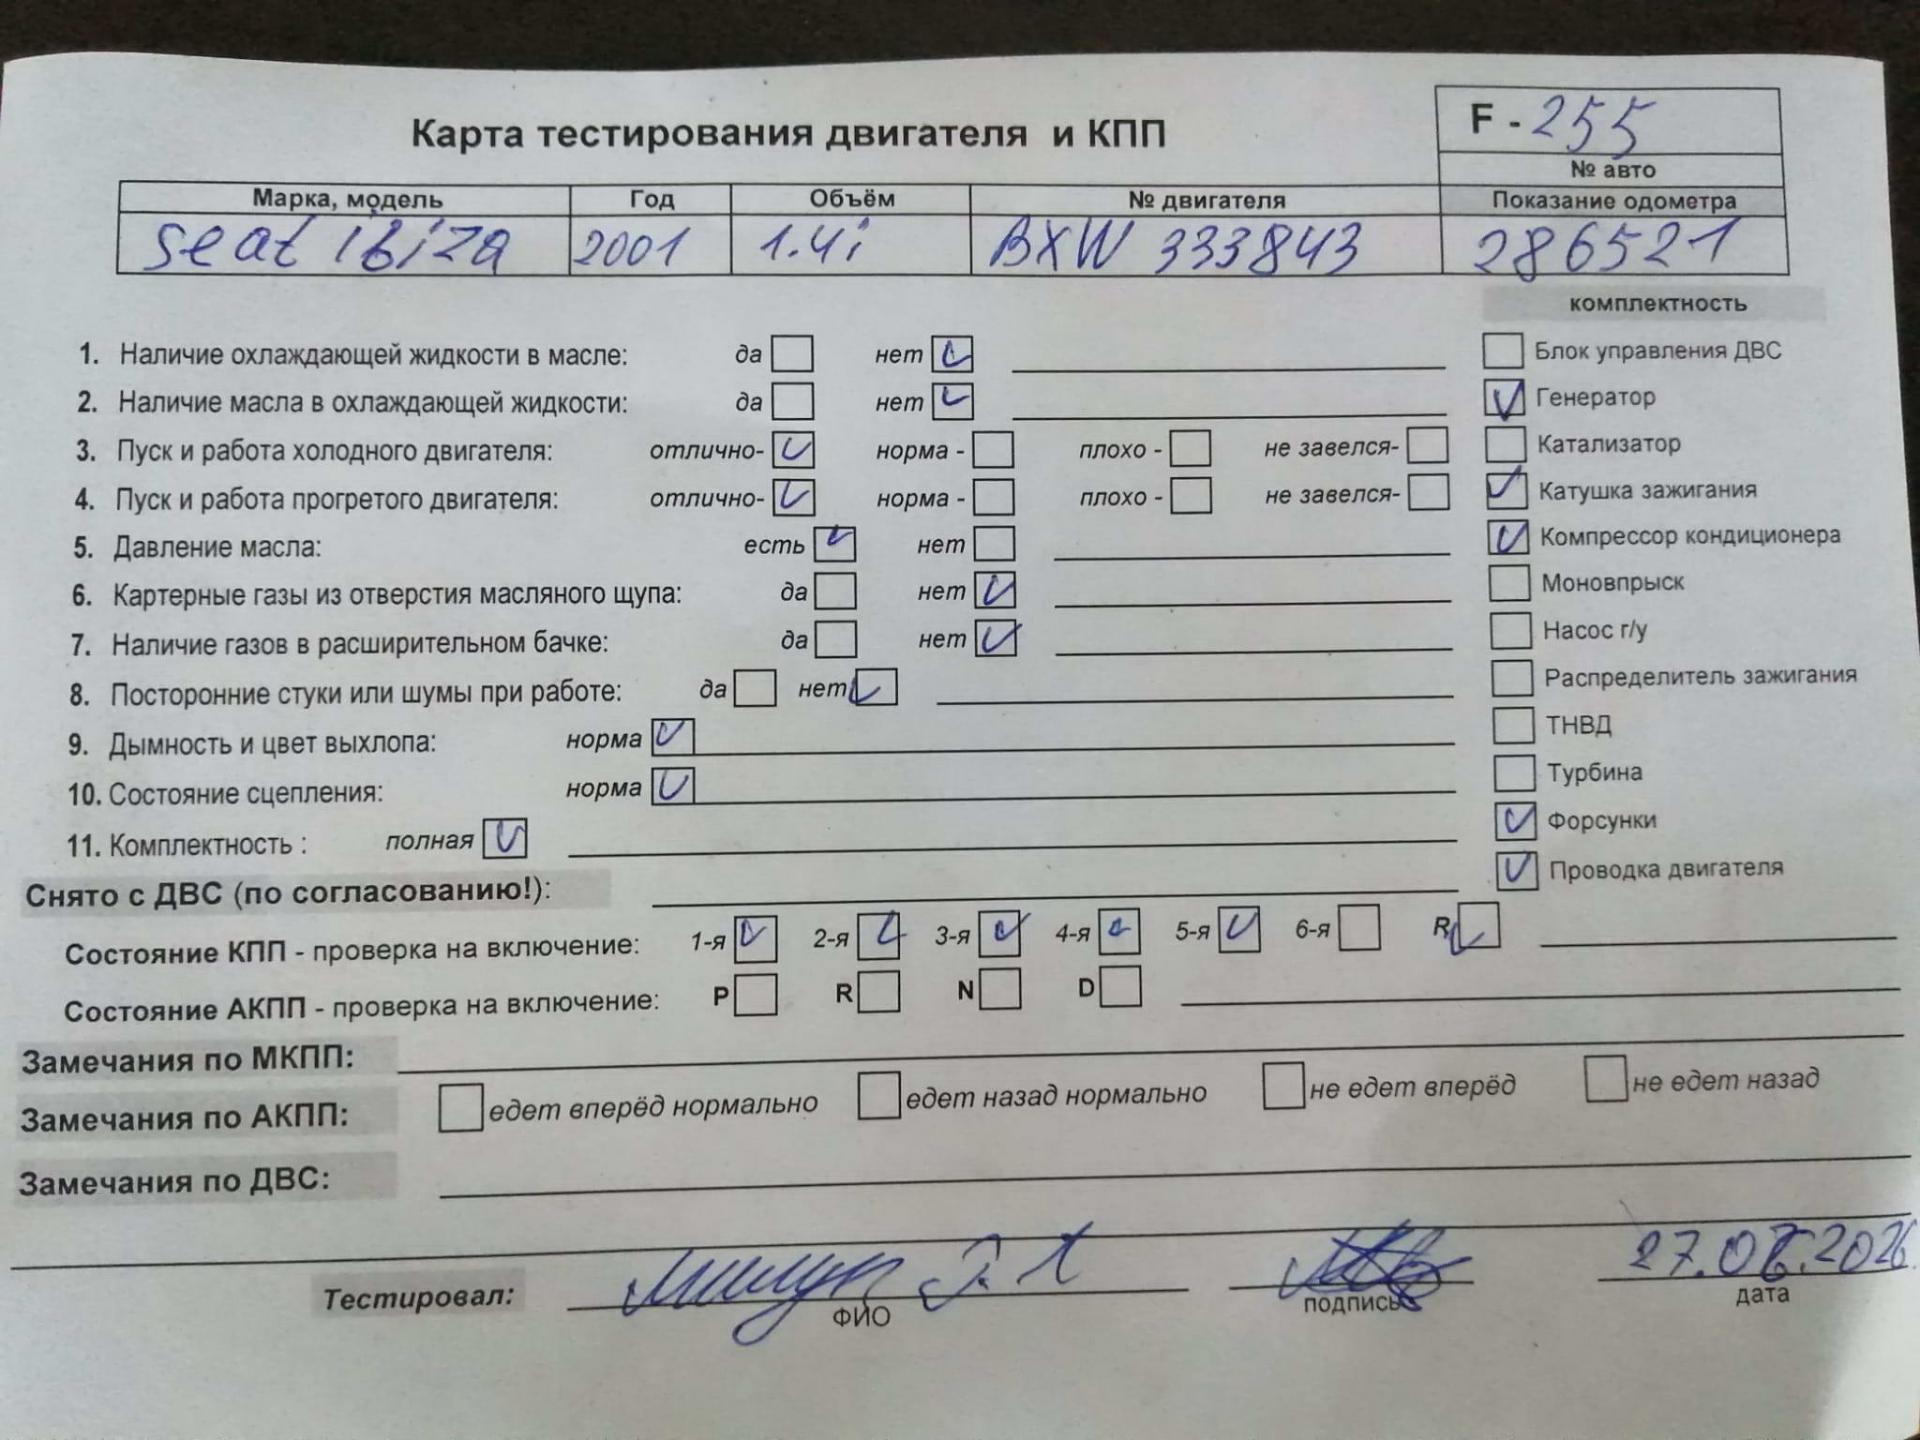 Карта тестирования двигателя и КПП
F - 255
№ авто
Марка, модель Год Объём № двигателя Показание одометра
seat ibiza 2001 1.4i BXW 333843 286521
комплектность
1. Наличие охлаждающей жидкости в масле: да нет
Блок управления ДВС
2. Наличие масла в охлаждающей жидкости: да нет
Генератор
3. Пуск и работа холодного двигателя: отлично- норма - плохо - не завелся-
Катализатор
4. Пуск и работа прогретого двигателя: отлично- норма - плохо - не завелся-
Катушка зажигания
5. Давление масла: есть нет
Компрессор кондиционера
6. Картерные газы из отверстия масляного щупа: да нет
Моновпрыск
7. Наличие газов в расширительном бачке: да нет
Насос г/у
8. Посторонние стуки или шумы при работе: да нет
Распределитель зажигания
9. Дымность и цвет выхлопа: норма
ТНВД
10. Состояние сцепления: норма
Турбина
11. Комплектность : полная
Форсунки
Проводка двигателя
Снято с ДВС (по согласованию!):
Состояние КПП - проверка на включение: 1-я 2-я 3-я 4-я 5-я 6-я R
Состояние АКПП - проверка на включение: P R N D
Замечания по МКПП:
Замечания по АКПП: едет вперёд нормально едет назад нормально не едет вперёд не едет назад
Замечания по ДВС:
Тестировал:
ФИО подпись дата